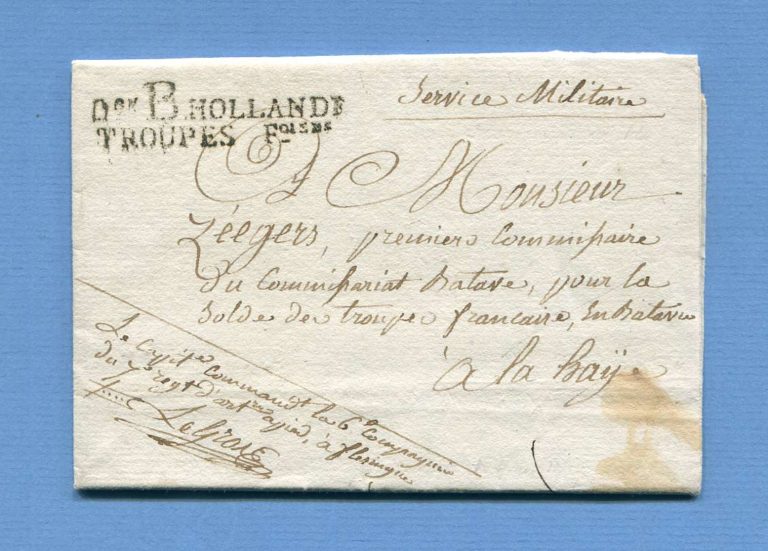 Don B HOLLANDE
TROUPES F.oises
Service Militaire
A Monsieur
Zéegers, premier Commissaire
du Commissariat Batave, pour la
Solde des troupes francaise, En Batavie
à la haÿe
Le capite command.t la 6e Compagnie
du 7e regt d'art. à pied, à flesingue